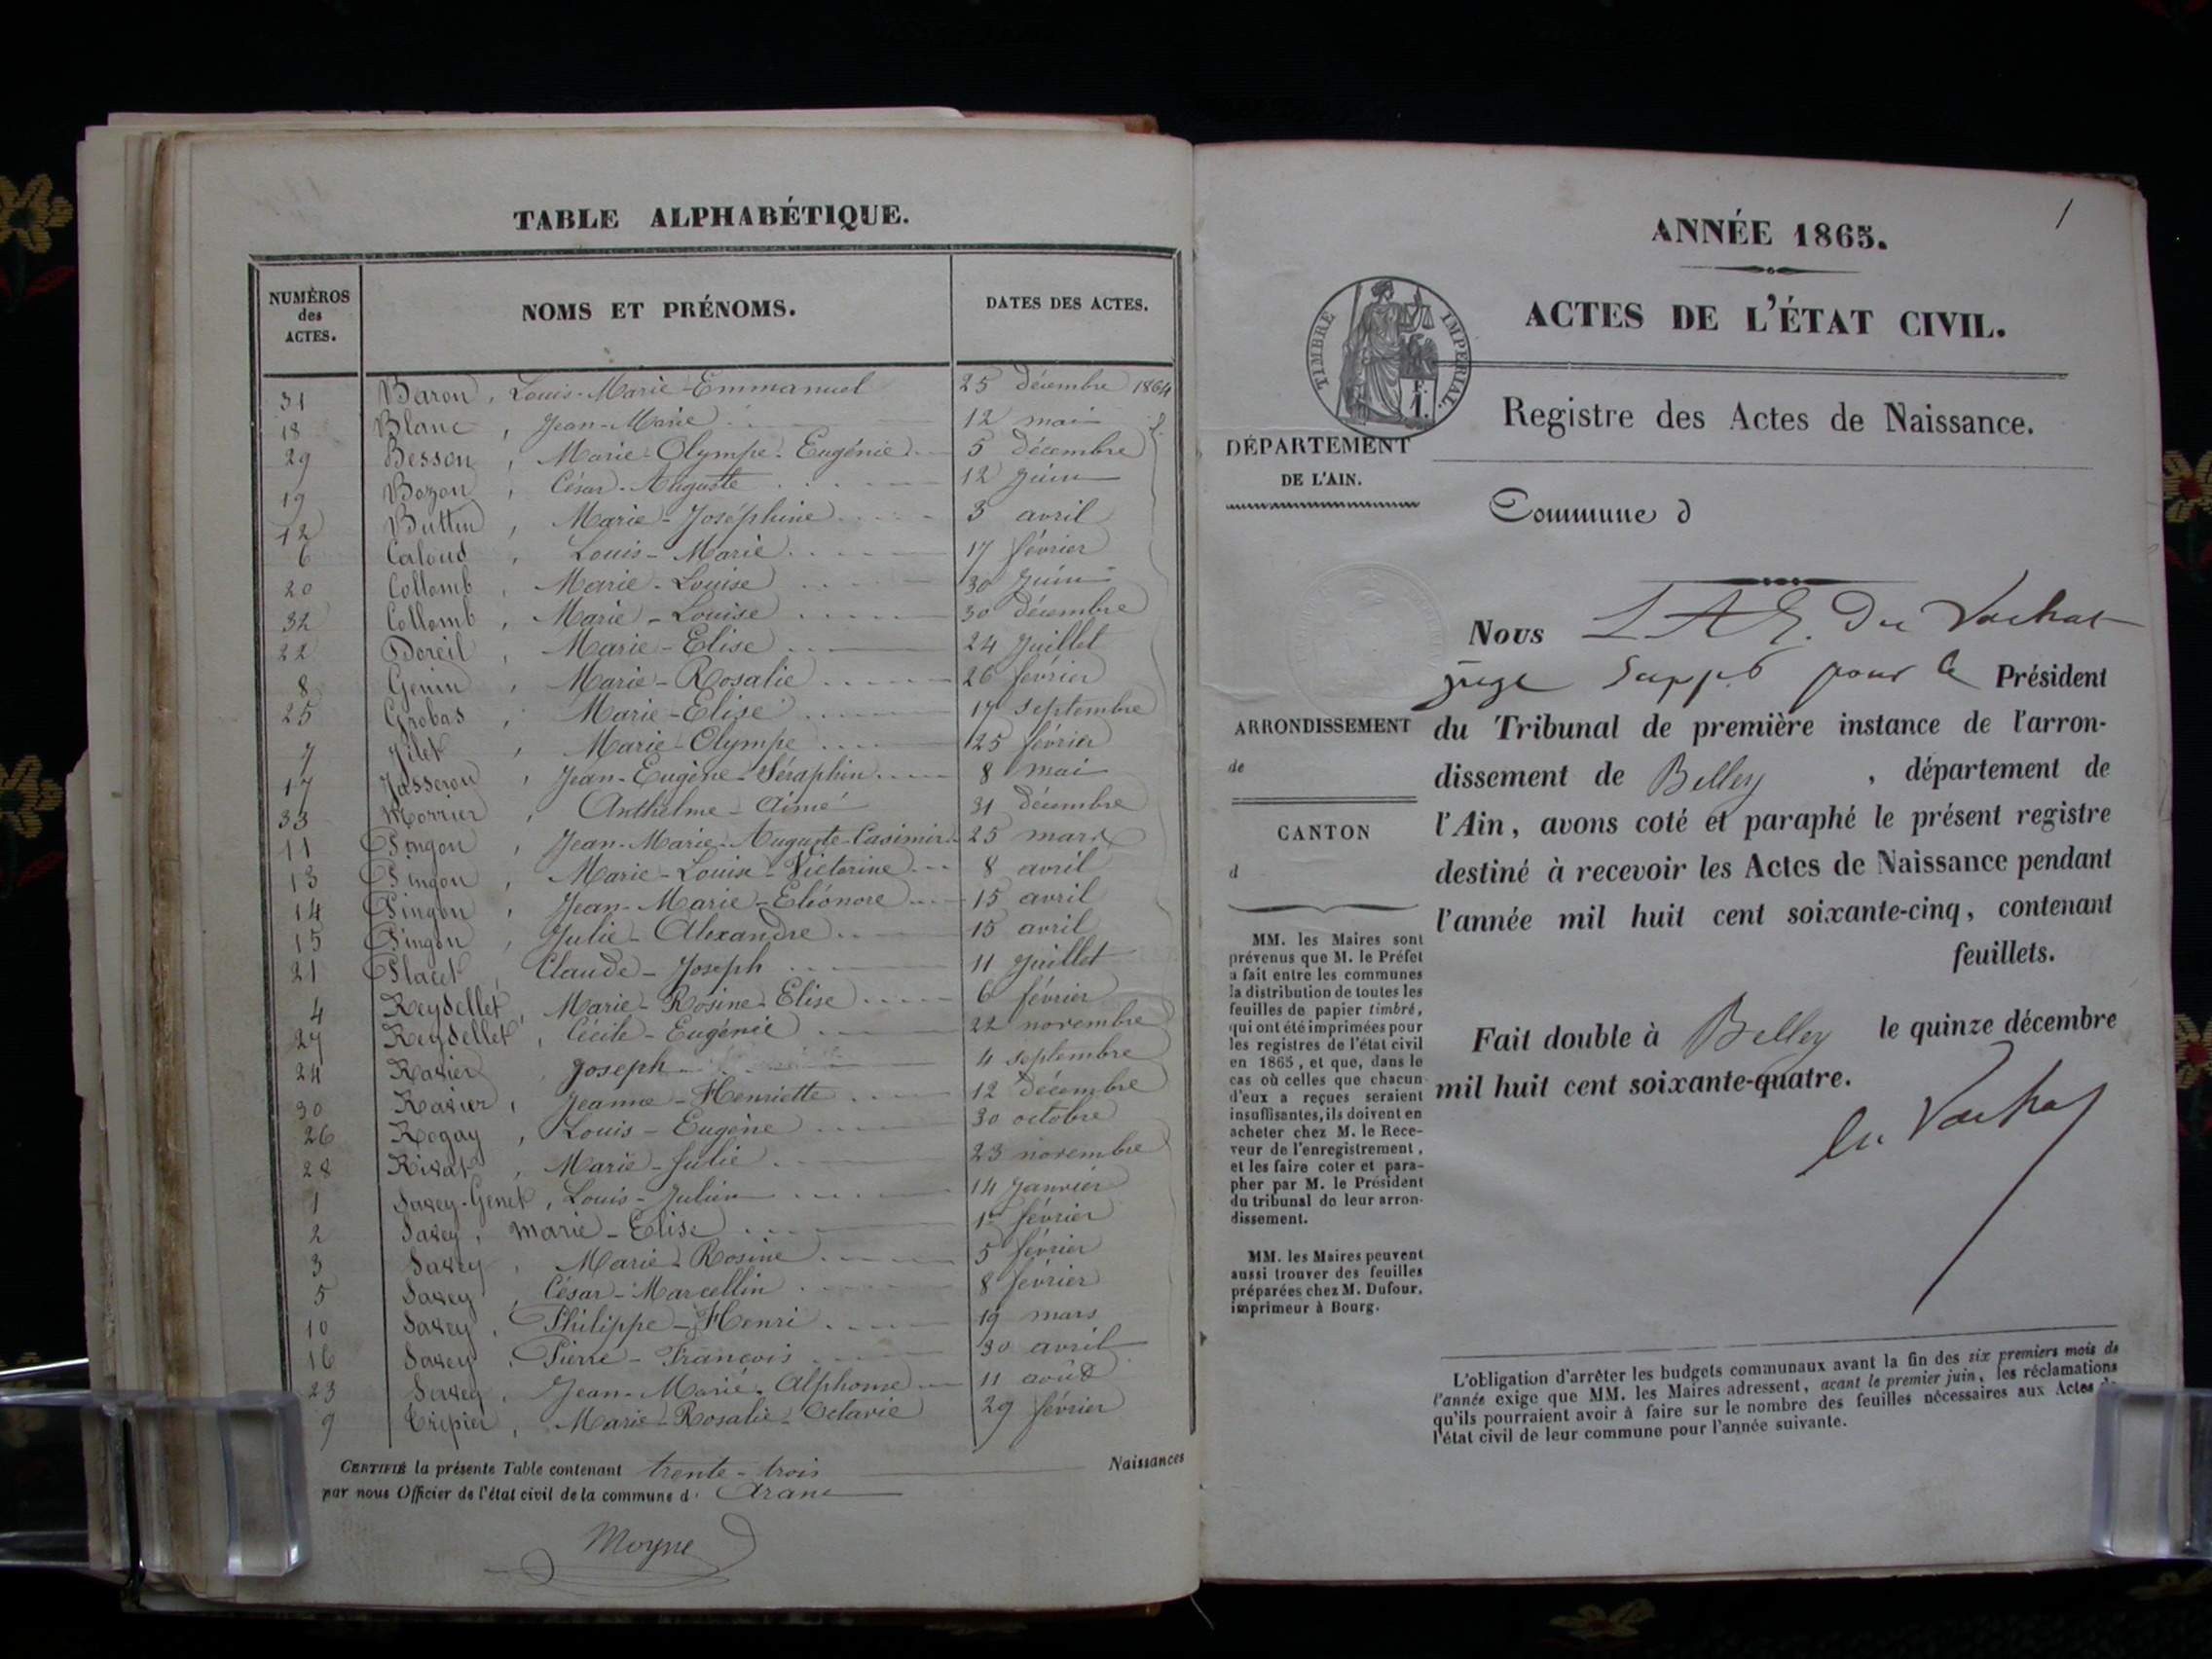 TABLE ALPHABÉTIQUE.
NUMÉROS
des
ACTES.
NOMS ET PRÉNOMS.
DATES DES ACTES.
31 Baron, Louis-Marie-Emmanuel 25 décembre 1864
18 Blanc, Jean-Marie 12 mai
29 Besson, Marie-Olympe-Eugénie 5 décembre
19 Bozon, César-Auguste 12 juin
12 Buttin, Marie-Joséphine 3 avril
6 Caloud, Louis-Marie 17 février
20 Collomb, Marie-Louise 30 juin
32 Collomb, Marie-Louise 30 décembre
22 Doreil, Marie-Elise 24 juillet
8 Genin, Marie-Rosalie 26 février
25 Grobas, Marie-Elise 17 septembre
7 Marie-Olympe 25 février
17 Jasseron, Jean-Eugène-Séraphin 8 mai
33 Morrier, Anthelme-Aimé 31 décembre
11 Pingon, Jean-Marie-Auguste-Casimir 25 mars
13 Pingon, Marie-Louise-Victorine 8 avril
14 Pingon, Jean-Marie-Eléonore 15 avril
15 Pingon, Julie-Alexandre 15 avril
21 Placet, Claude-Joseph 11 juillet
4 Reydellet, Marie-Rosine-Elise 6 février
27 Reydellet, Cécile-Eugénie 22 novembre
24 Ravier, Joseph 4 septembre
30 Ravier, Jeanne-Henriette 12 décembre
26 Rogay, Louis-Eugène 30 octobre
28 Rivat, Marie-Julie 23 novembre
1 Savey-Genet, Louis-Julien 14 janvier
2 Savey, Marie-Elise 1er février
3 Savey, Marie-Rosine 5 février
5 Savey, César-Marcellin 8 février
10 Savey, Philippe-Henri 19 mars
16 Savey, Pierre-François 30 avril
23 Savey, Jean-Marie-Alphonse 11 août
9 Crépier, Marie-Rosalie-Octavie 29 février
CERTIFIÉ la présente Table contenant trente-trois Naissances
par nous Officier de l'état civil de la commune d'Aranc
Moyne
1
ANNÉE 1865.
ACTES DE L'ÉTAT CIVIL.
TIMBRE IMPÉRIAL.
F.
1.
Registre des Actes de Naissance.
DÉPARTEMENT
DE L'AIN.
Commune d
ARRONDISSEMENT
de
CANTON
d
MM. les Maires sont
prévenus que M. le Préfet
a fait entre les communes
la distribution de toutes les
feuilles de papier timbré,
qui ont été imprimées pour
les registres de l'état civil
en 1865, et que, dans le
cas où celles que chacun
d'eux a reçues seraient
insuffisantes, ils doivent en
acheter chez M. le Rece-
veur de l'enregistrement,
et les faire coter et para-
pher par M. le Président
du tribunal de leur arron-
dissement.
MM. les Maires peuvent
aussi trouver des feuilles
préparées chez M. Dufour,
imprimeur à Bourg.
Nous du Vachat
juge supp. pour le Président
du Tribunal de première instance de l'arron-
dissement de Belley, département de
l'Ain, avons coté et paraphé le présent registre
destiné à recevoir les Actes de Naissance pendant
l'année mil huit cent soixante-cinq, contenant
feuillets.
Fait double à Belley le quinze décembre
mil huit cent soixante-quatre.
du Vachat
L'obligation d'arrêter les budgets communaux avant la fin des six premiers mois de
l'année exige que MM. les Maires adressent, avant le premier juin, les réclamations
qu'ils pourraient avoir à faire sur le nombre des feuilles nécessaires aux Actes de
l'état civil de leur commune pour l'année suivante.